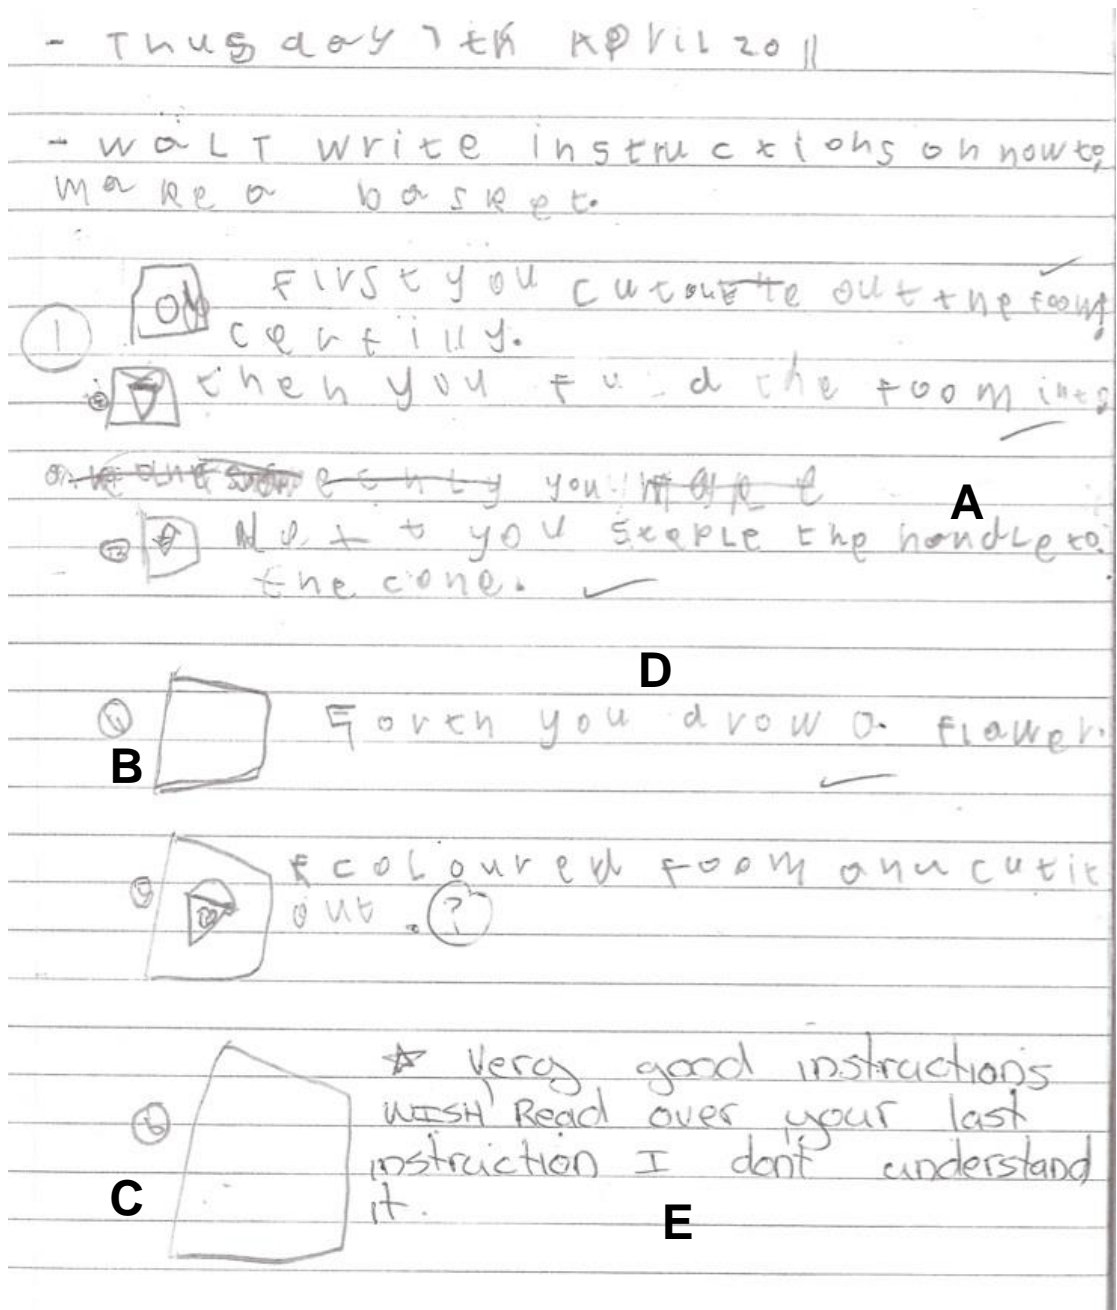 - Thusday 7th April 2011
- WALT write instructions on how to
make a basket.
1 First you cut out the foom
cerfilly.
2 then you fu d the foom into
you make
A
3 Next you steple the handle to
the cone.
D
4 Forth you drow a flawer.
B
5 coloured foom and cut it
out. ?
☆ Very good instructions
6 WISH Read over your last
instruction I dont understand
C
it.
E